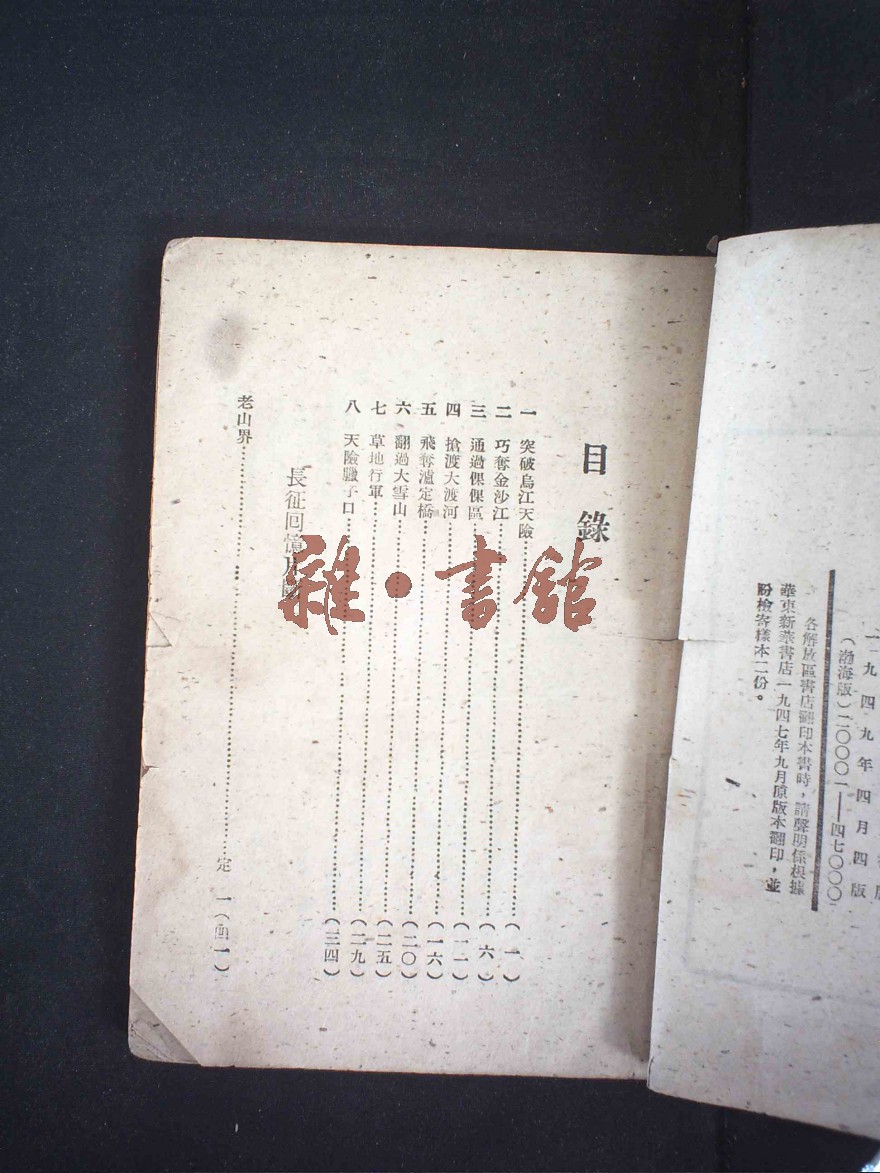 一九四九年四月四版
(渤海版)二〇〇〇一——四七〇〇〇
各解放區書店翻印本書時，請聲明係根據
華東新華書店一九四七年九月原版本翻印，並
盼檢寄樣本二份。
目錄
一 突破烏江天險……(一)
二 巧奪金沙江……(六)
三 通過倮倮區……(一一)
四 搶渡大渡河……(一六)
五 飛奪瀘定橋……(二〇)
六 翻過大雪山……(二五)
七 草地行軍……(二九)
八 天險臘子口……(三四)
長征回憶
老山界……定 一(四一)
雜·書館